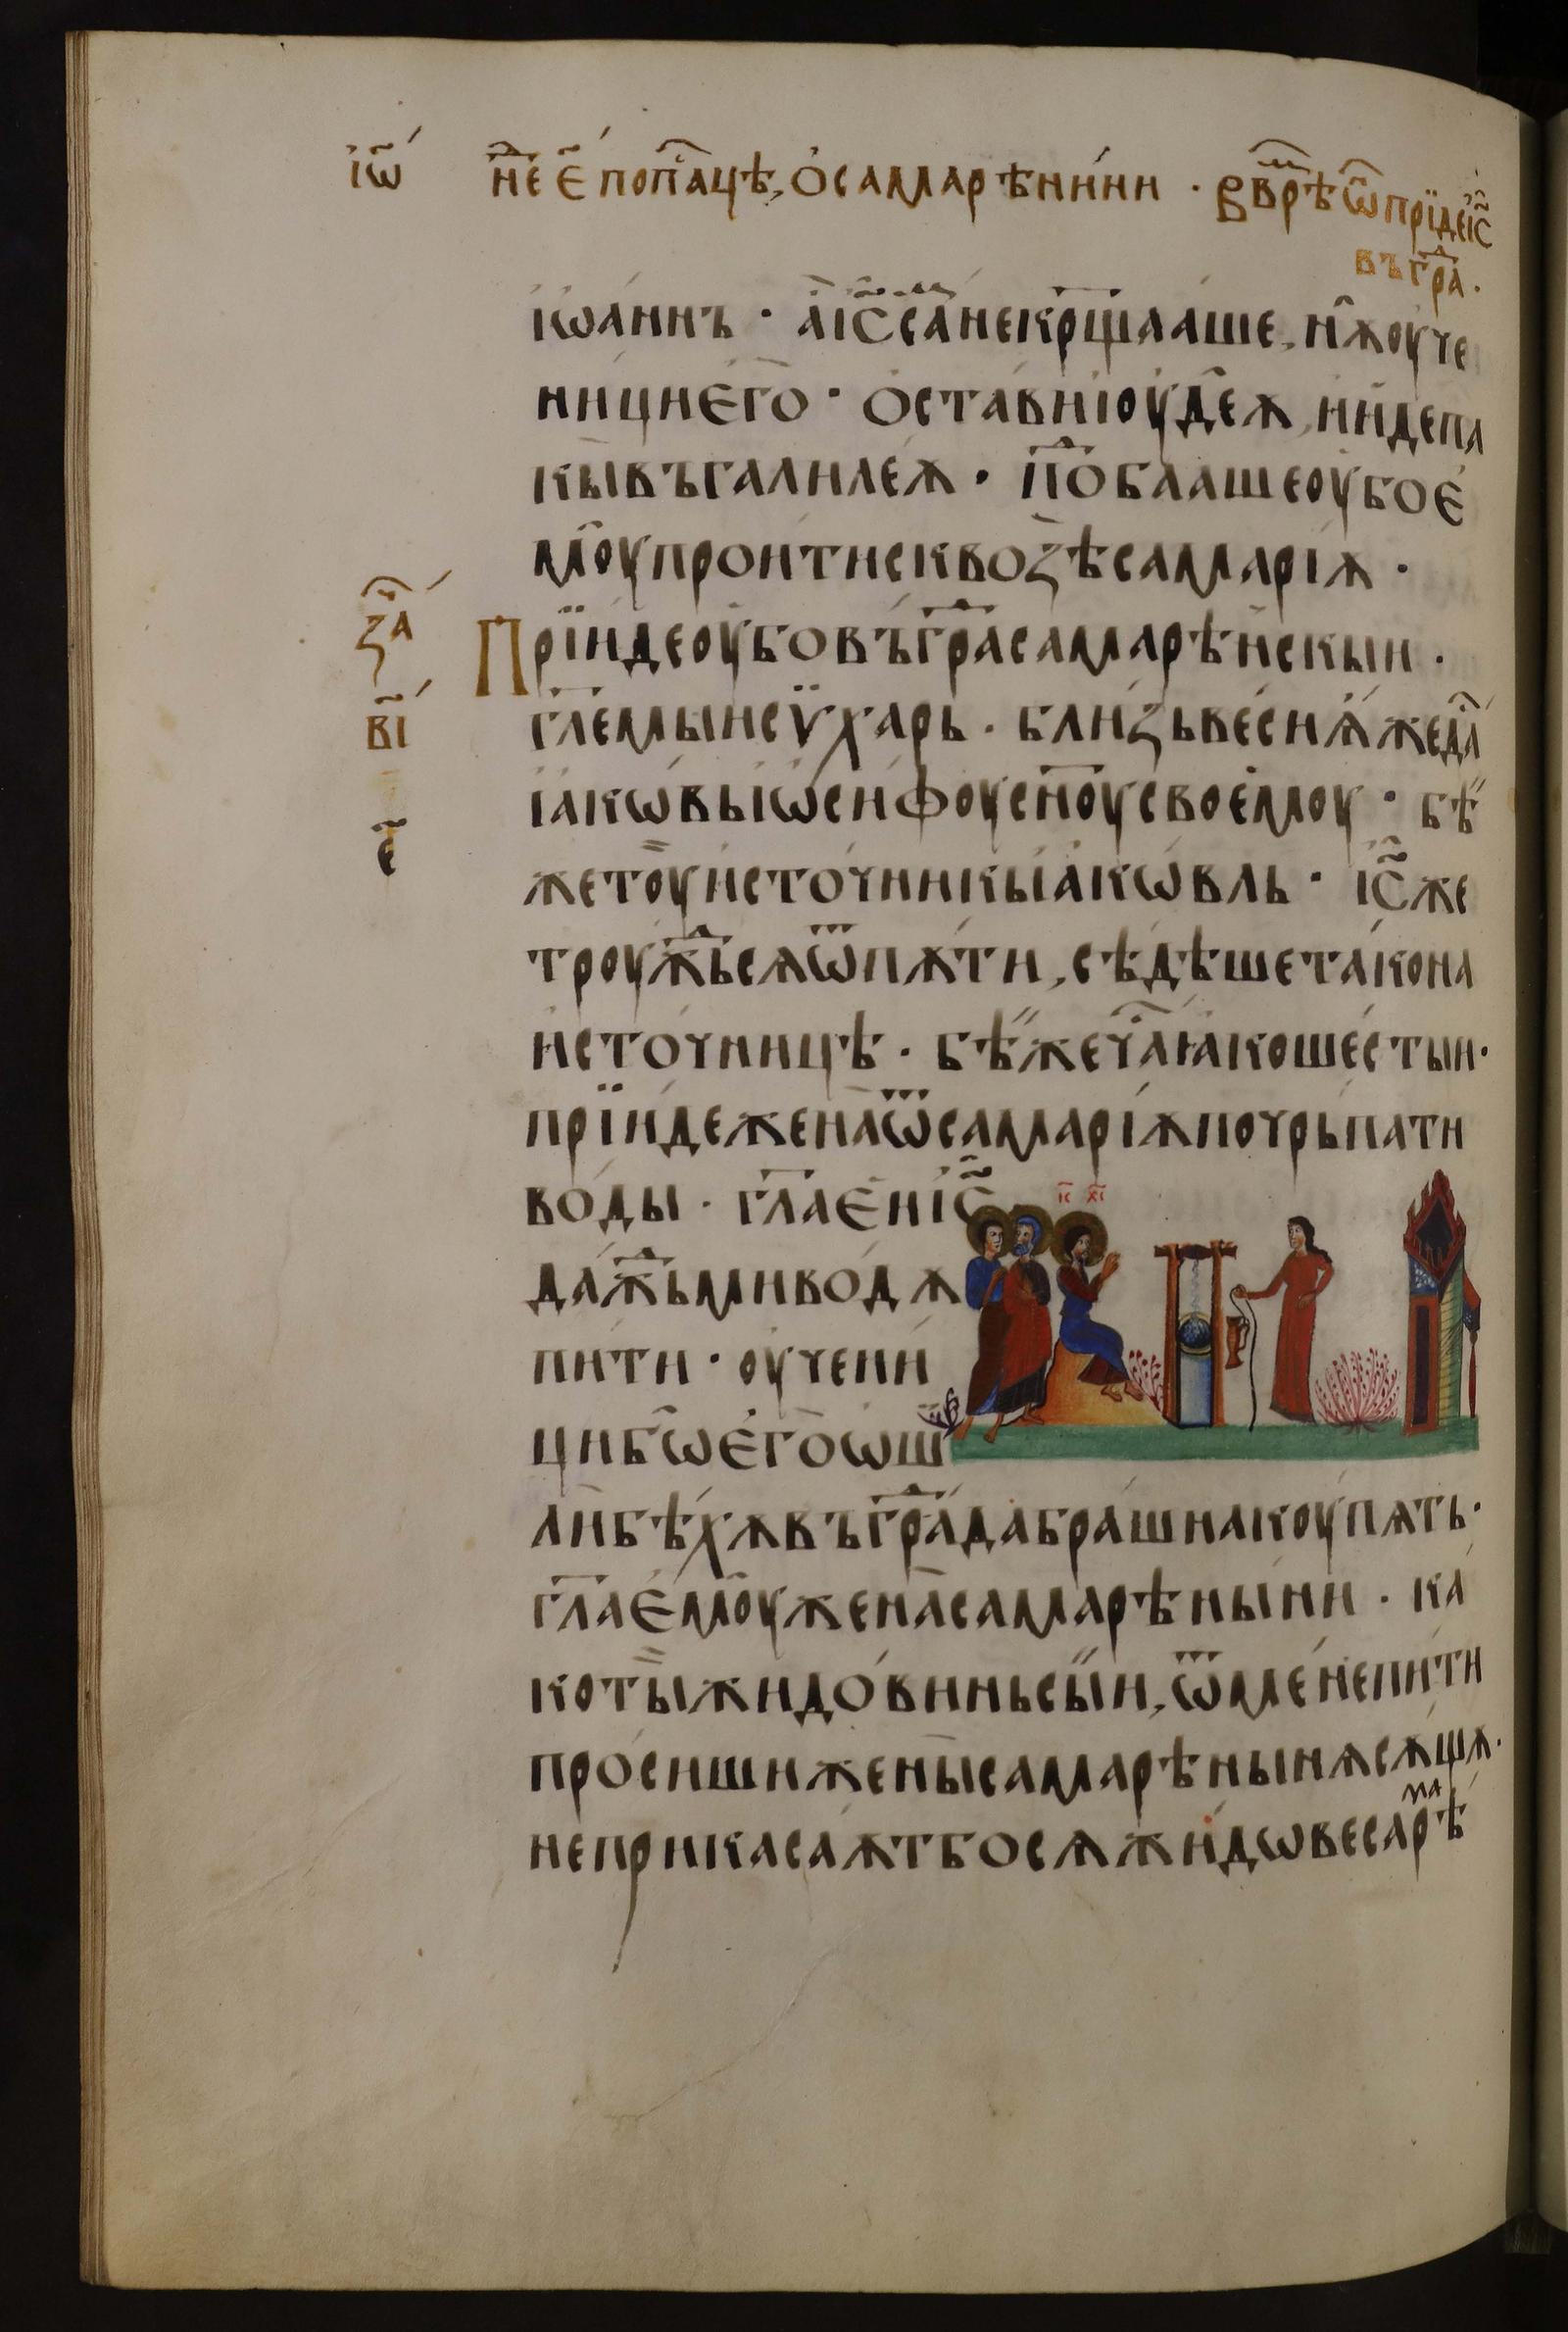 і҆ѡ҃
н҃еⷣ є҃ попа҃цѣ, ѻ҆самарѣни́ни · въврѣⷨѡ҆прїидеі҆с҃
въгра҃ⷣ ·
і҆ѡа́ннъ · а҆і҆с҃са́некрщ҃ааше, н҆ѫоуче
ни́циє҆го̀ · ѻ҆ста́виі҆оуде́ѫ, и҆и҆́депа
кы̀въгалиле́ѫ · поⷣ҃баашеоубоє҆
моупроити́сквозѣ̀самарі́ѫ ·
за҃ⷱ
Прїи́деоубовъгра҃ⷣсамарѣ́нскыи ·
в҃і
гл҃емыисѵха́рь · бли́зьве́сиѫ҆́жеда҃
і҆а́кѡвьі҆ѡ́сифоусн҃оусвоемоу · бѣ́
є҃
жетоуи҆сто́чникьі҆а́кѡвль · і҆с҃же
троуⷣжьсѧѿпѫти́, сѣдѣ́шета́кона
и҆сто́чницѣ · бѣ́жеча҃ꙗ҆́коше́стыи ·
прїи́деженаѿсамарі́ѫпочрьпати
во́ды · гл҃аєи҆і҆с҃
і҃с х҃с
да́жⷣьмиводѫ̀
пи́ти · оучени
цибѡє҆го̀ѡш
лиибѣ́хѫвъгра҃ⷣдабра́шнакоупѧ́ть ·
гл҃аємоуженасамарѣны́ни · ка́
котыжидо́виньсы́и, ѿмене́пи́ти
про́сишиженысамарѣны́нѧсѫ́щѧ ·
неприкаса́ѫтбосѧжи́дѡвесамарѣ̀